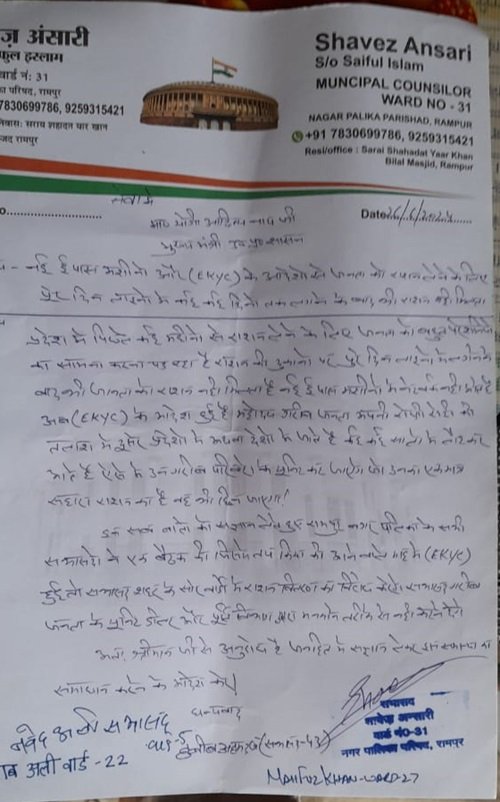 ज़ अंसारी
फुल इस्लाम
वार्ड नं: 31
का परिषद, रामपुर
7830699786, 9259315421
निवास: सराय शहादत यार खान
जद रामपुर
Shavez Ansari
S/o Saiful Islam
MUNCIPAL COUNSILOR
WARD NO - 31
NAGAR PALIKA PARISHAD, RAMPUR
+91 7830699786, 9259315421
Resi/office : Sarai Shahadat Yaar Khan
Bilal Masjid, Rampur
सेवा में
o............................
Date 26/6/2024
मा० योगी आदित्य नाथ जी
मुख्य मंत्री उ० प्र० शासन
नई ई पास मशीनो और (EKYC) के आदेशो से जनता को राशन लेने के लिए
पूरे दिन लाइनो में कई कई दिनो तक लगने के बाद भी राशन नही मिलना
प्रदेश में पिछले कई महीनो से राशन लेने के लिए जनता को बहुत
का सामना करना पड़ रहा है राशन की दुकानो पर पूरे दिन लाइनो में लगने के
बाद भी जनता को राशन नही मिलता है नई ई पास मशीनो में नेटवर्क नही
अब (EKYC) के आदेश हुए है महोदय गरीब जनता अपनी रोजी रोटी की
तलाश में दूसरे प्रदेशो में अथवा देशो में जाते है कई कई सालो में लौटकर
आते है ऐसे में उन गरीब परिवारो के यूनिट कट जाऐगे जो उनका एक मात्र
सहारा राशन का है वह भी छिन जाएगा!
इन सब बातो का संज्ञान लेते हुए रामपुर नगर पालिका के सभी
सभासदो ने एक बैठक की जिसमे तय किया की आने वाले माह में (EKYC)
हुई तो सभासद शहर के सभी वार्डो में राशन वितरण का विरोध करेंगे सभासद गरीब
जनता के यूनिट डीलर और पूर्ति विभाग द्वारा मनमाने तरीके से नही काटने देंगे
अतः श्रीमान जी से अनुरोध है जनहित में संज्ञान लेकर इस समस्या का
समाधान करने के आदेश करे।
धन्यवाद
सभासद
शावेज़ अन्सारी
वार्ड नं0-31
नगर पालिका परिषद, रामपुर
जावेद अली सभासद
अली वार्ड - 22
(सभासद-43)
MAHFUZ KHAN-WARD-27